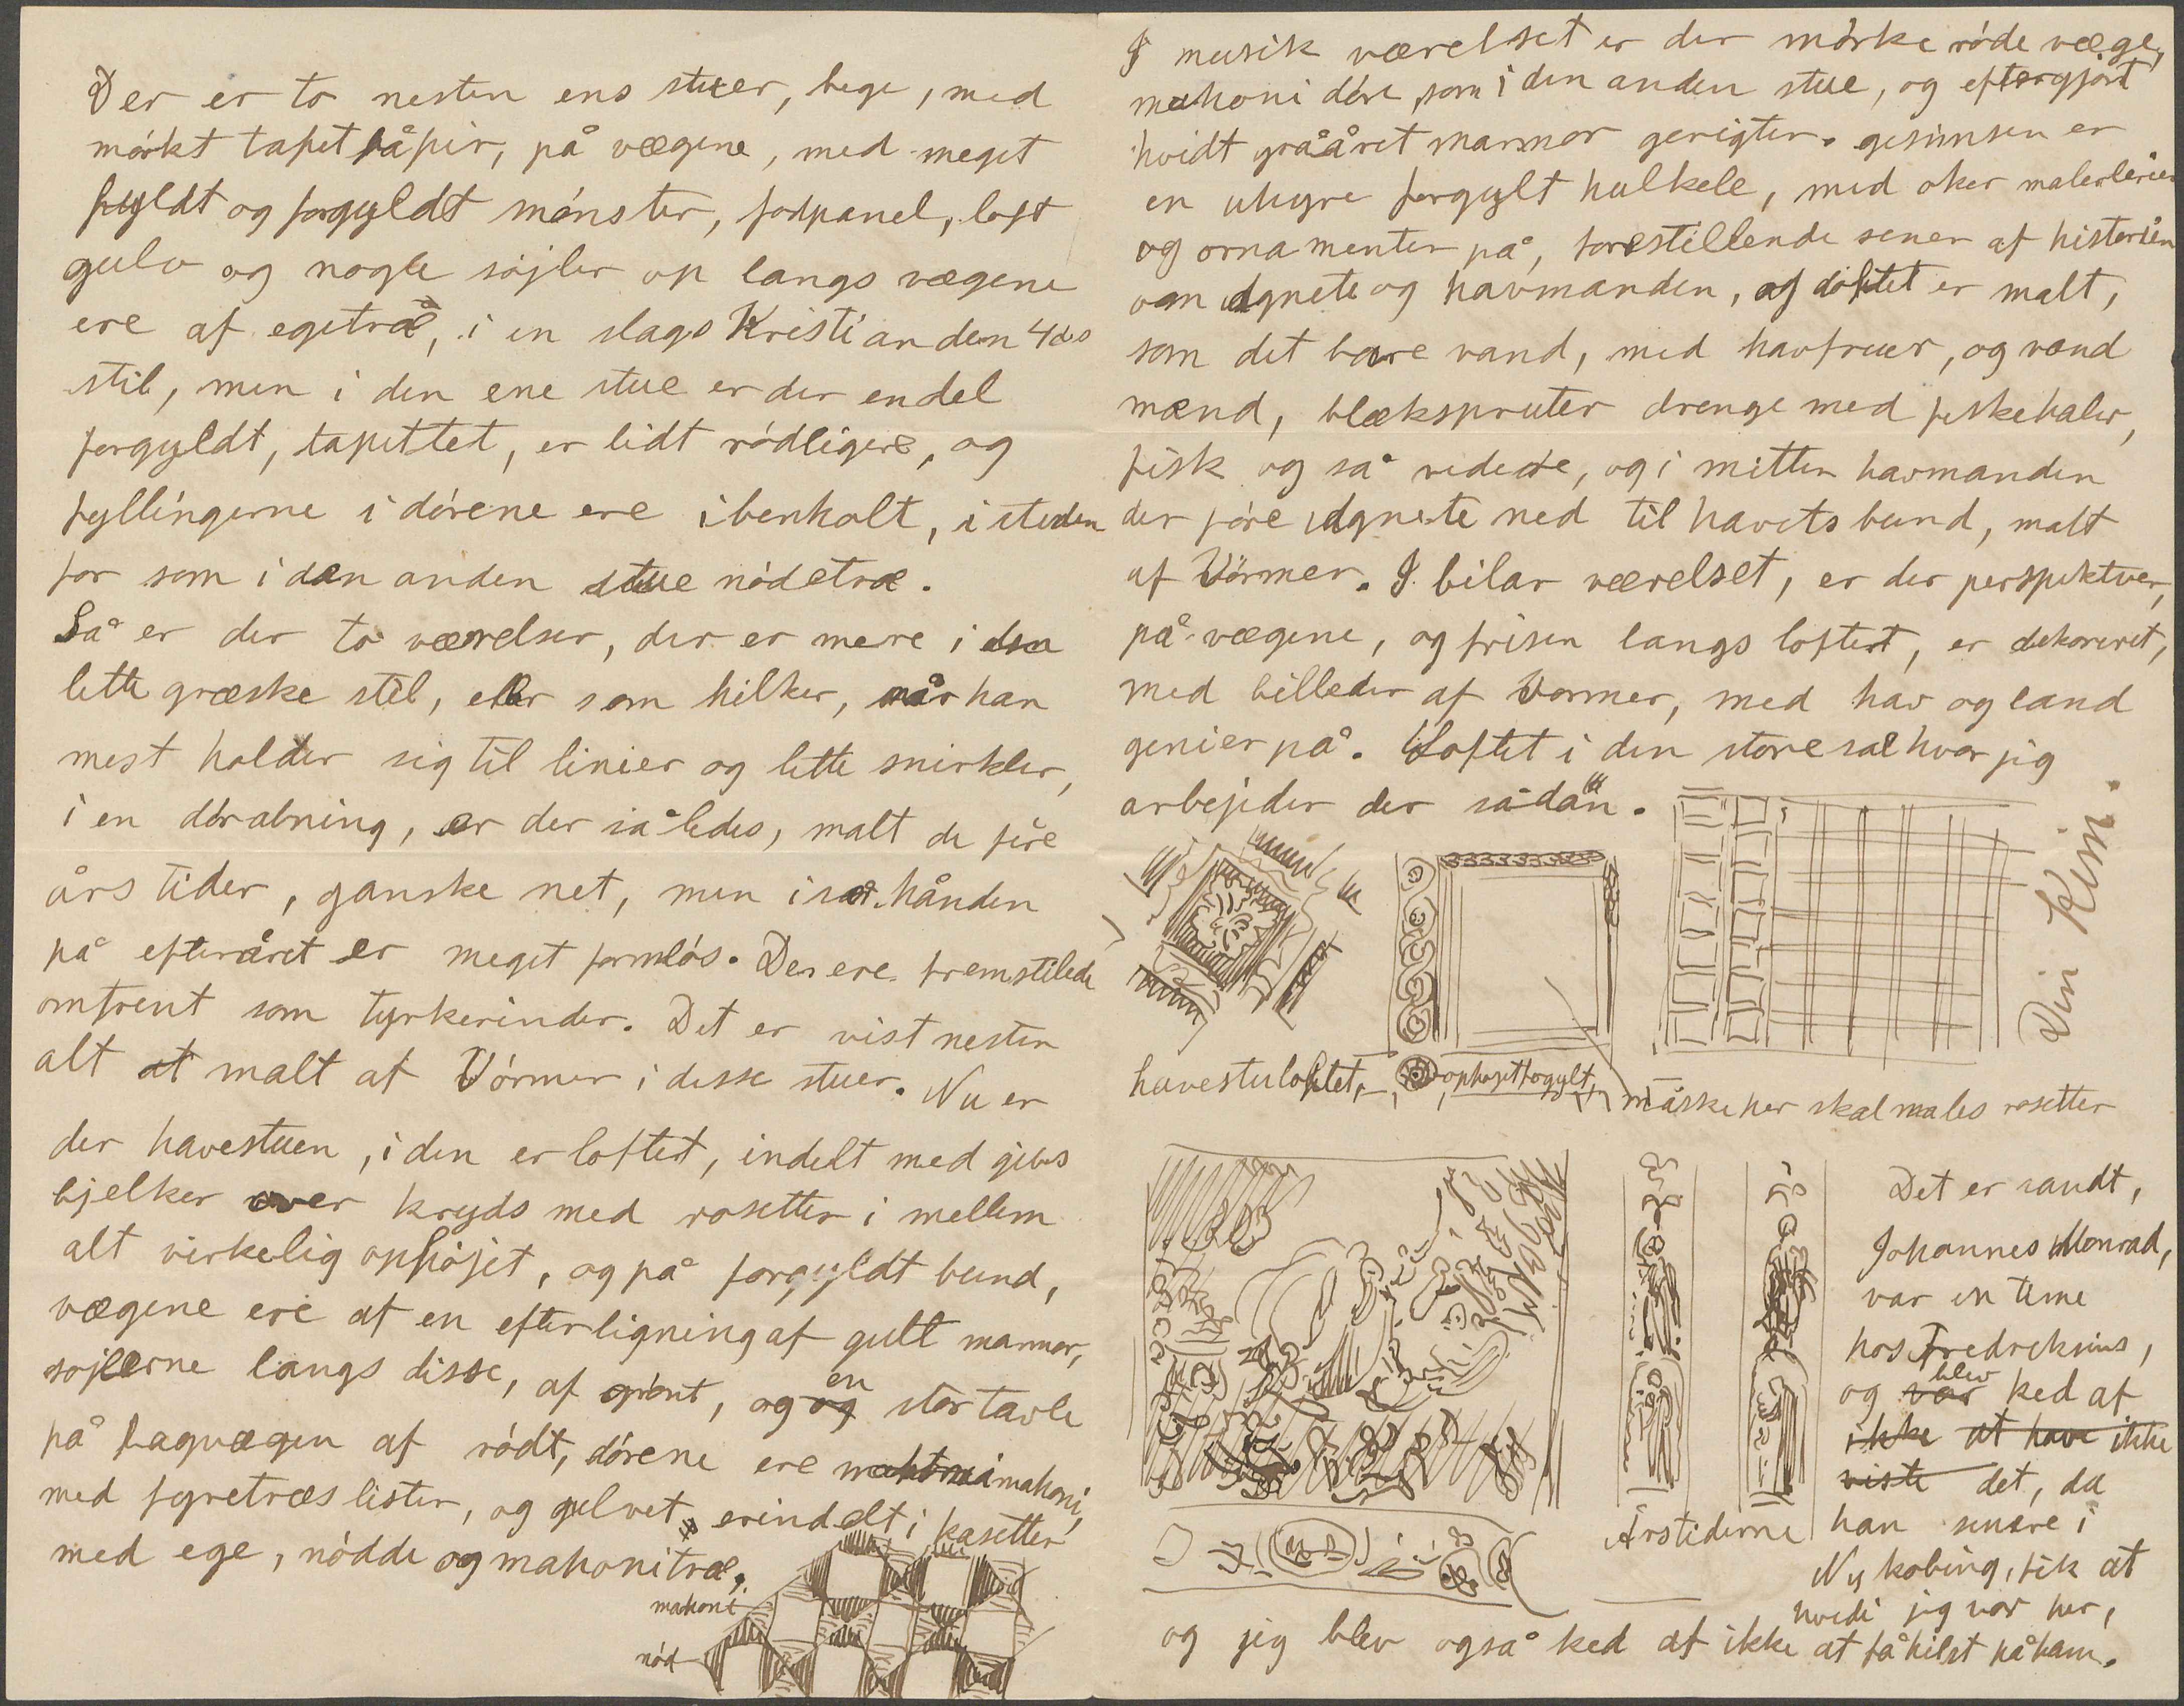 Der er to nesten ens stuer, bege, med
mórkt tapet påpir, på vægene, med meget
fyldt og forgyldt mónster, fodpanel, loft
gulv og nogle sójler op langs vægene
ere af egetræ, i en slags Kristian den 4des
stil, men i den ene stue er der endel
forgyldt, tapettet, er lidt ródligere, og
fyllingerne i dórene ere ibenholt, i steden
for som i den anden stue nódetræ.
Så er der to værelser, der er mere i den
lette græske stil, eller som hilker, når han
mest holder sig til linier og lette snirkler,
i en dórabning, er der således, malt de fire
års tider, ganske net, men især hånden
på efteråret er meget formlós. De ere fremstilede
omtrent som tyrkerinder. Det er vist nesten
alt at malt af Vórmer i disse stuer. Nu er
der havestuen, i den er loftet, indelt med gibs
bjelker over kryds med rosetter i mellem
alt virkelig ophójet, og på forgyldt bund,
vægene ere af en efterligning af gult marmor,
sójlerne langs disse, af grónt, og og en stor tavle
på bagvægen af ródt, dórene ere mahoni,
med fyretræs lister, og gulvet er indelt i kasetter
med ege, nódde og mahonitræ.
mahoni
nód
I musik værelset er der mórke róde væge,
mahoni dóre, som i den anden stue, og eftergjort
hvidt grååret marmor gerigter. gesimsen er
en uhyre forgylt hulkele, med oker malerierier
og ornamenter på, forestillende sener af historien
om Agnete og havmanden, og loftet er malt,
som det bare vand, med havfruer, og vand
mænd, blæksprutter drenge med fiskehaler,
fisk og så videre, og i mitten havmanden
der fóre Agnete ned til havets bund, malt
af Vórmer. I bilar værelset, er der perspektver,
på vægene, og frisen langs loftet, er dekoreret,
med billeder af Vormer, med hav og land
genier på. Loftet i den store sal hvor jeg
arbejder der sådan.
Din Kim.
havestuloftet,
ophojet forgylt,
måske her skal males rosetter
Årstiderne
Det er sandt,
Johannes Monrad,
var en time
hos Fredreksens,
og var blev ked af
ikke at have ikke
viste det, da
han senere i
Nykobing, fik at
hvide jeg var her,
og jeg blev også ked af ikke at få hilst på ham.